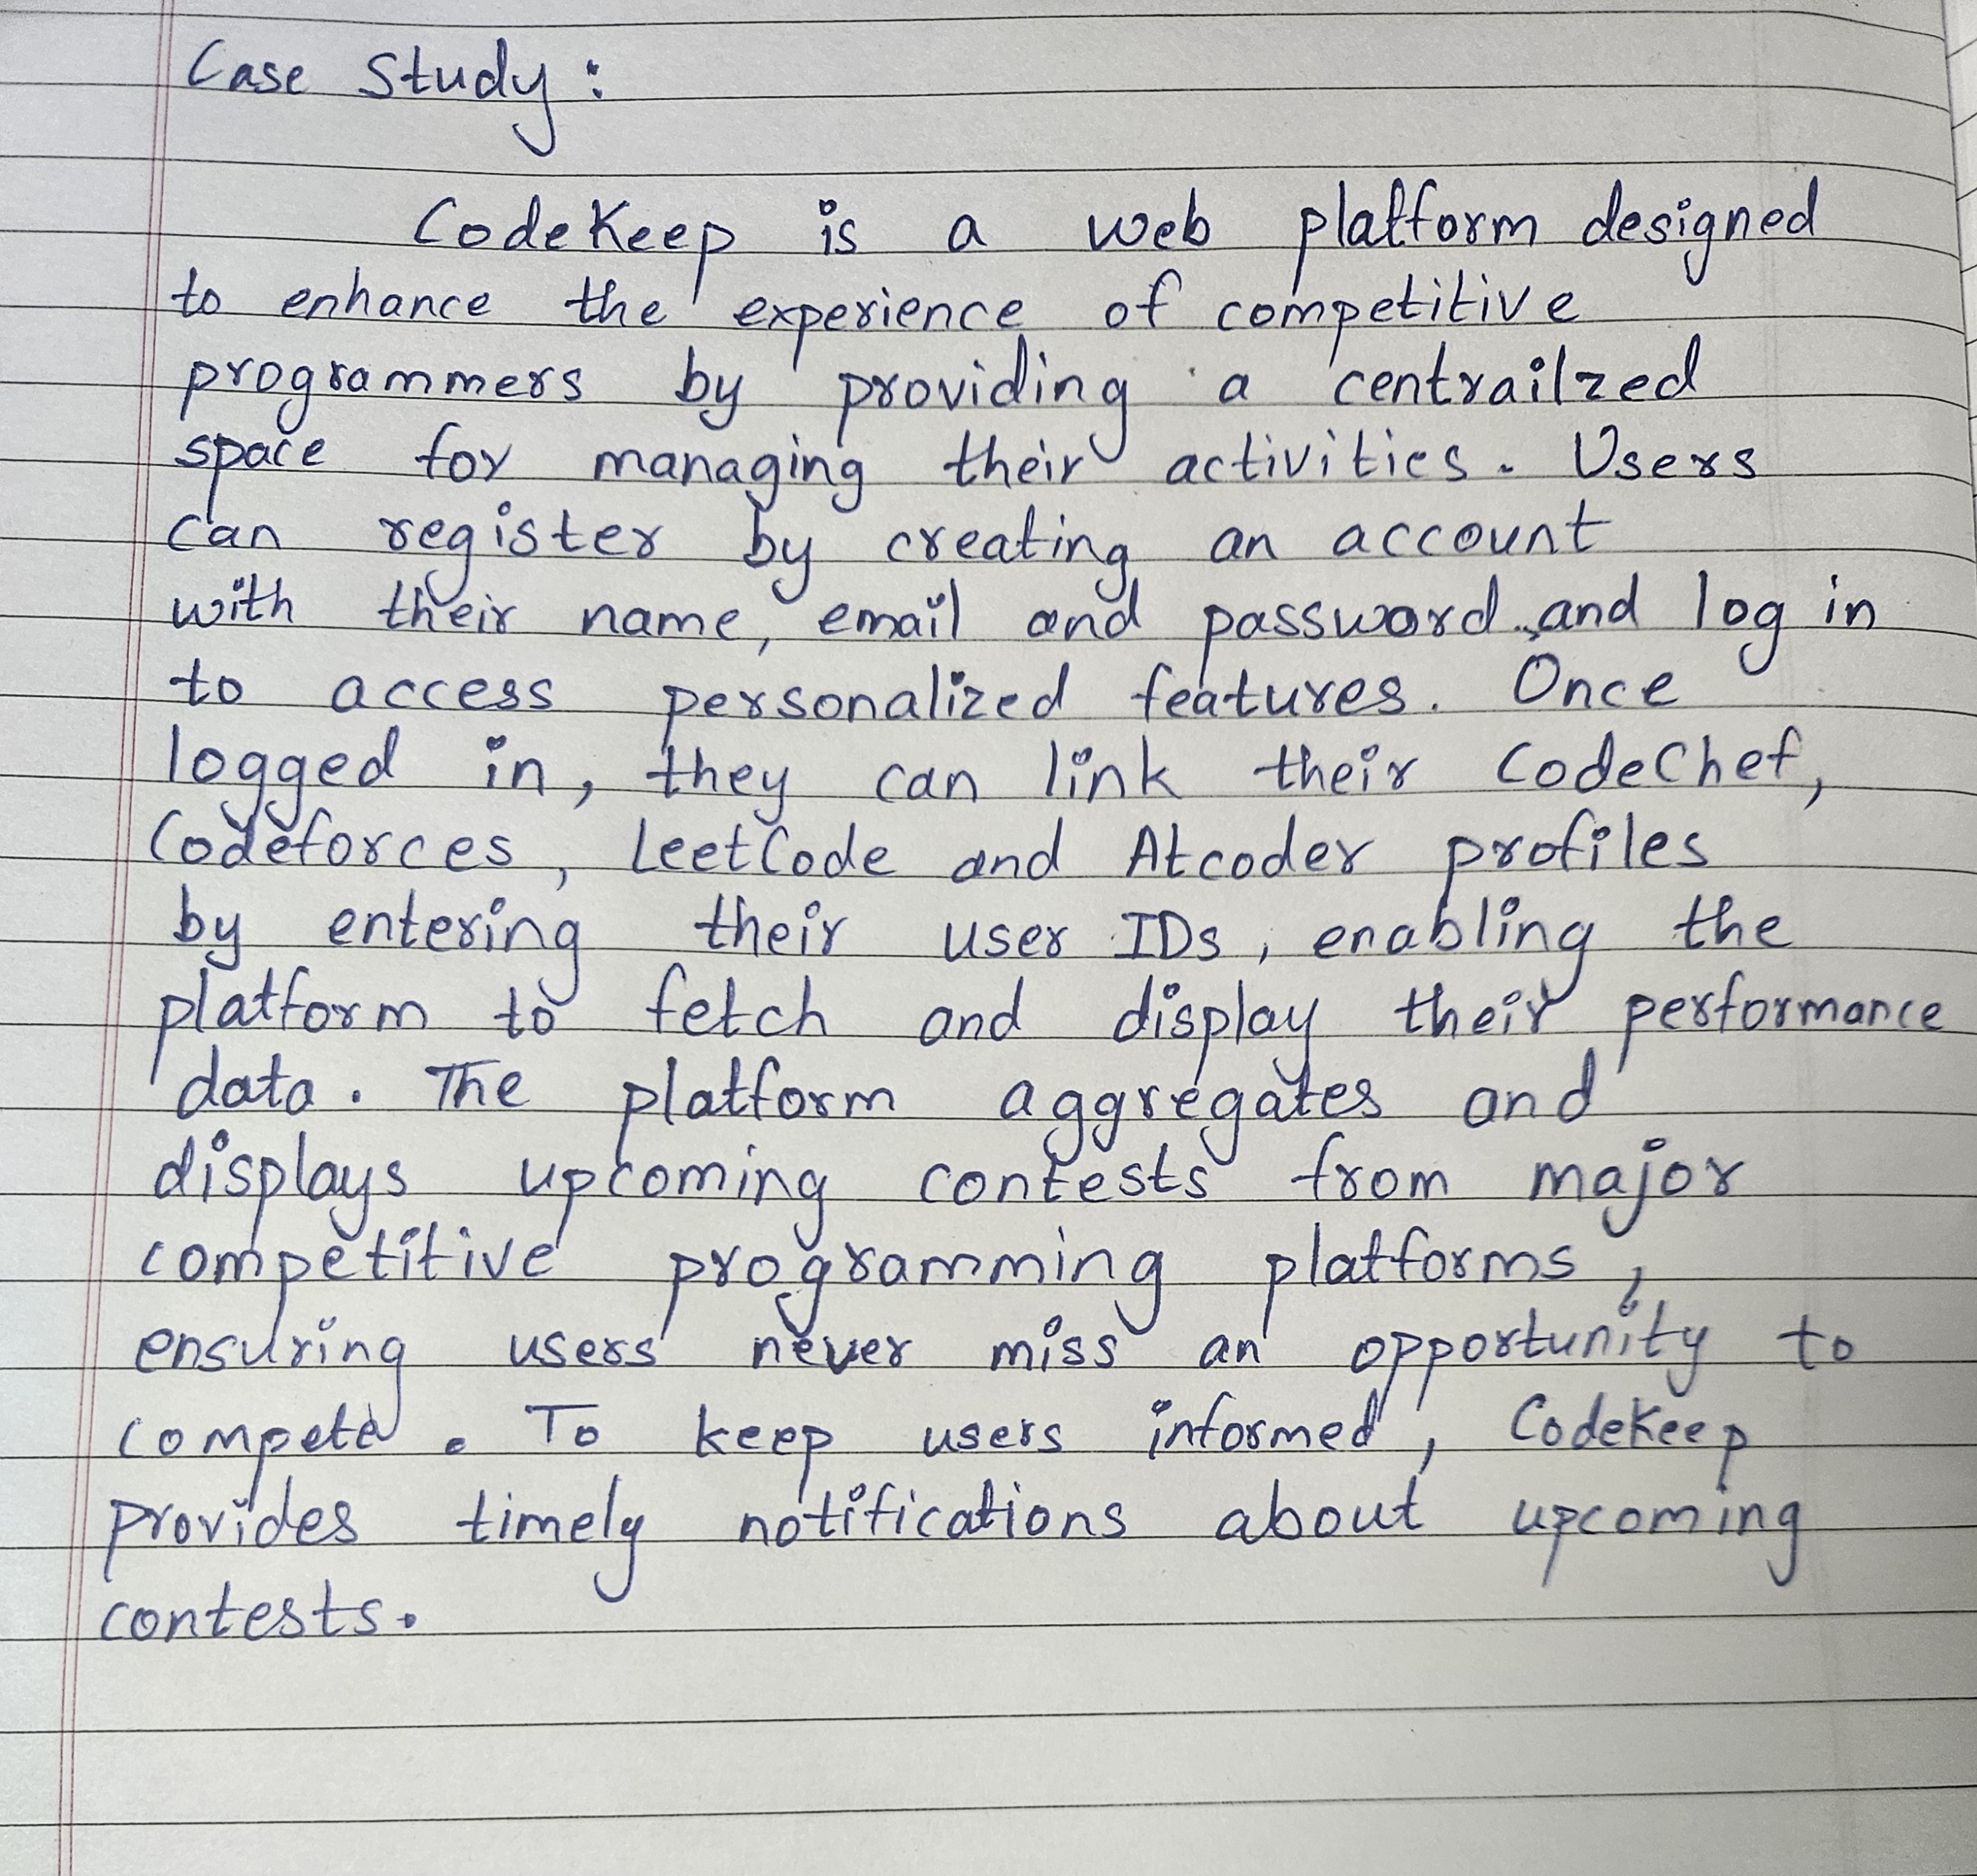 Case Study:
CodeKeep is a web platform designed
to enhance the experience of competitive
programmers by providing a centrailzed
space for managing their activities. Users
can register by creating an account
with their name, email and password and log in
to access personalized features. Once
logged in, they can link their CodeChef,
Codeforces, LeetCode and Atcoder profiles
by entering their user IDs, enabling the
platform to fetch and display their performance
data. The platform aggregates and
displays upcoming contests from major
competitive programming platforms,
ensuring users never miss an opportunity to
compete. To keep users informed, CodeKeep
provides timely notifications about upcoming
contests.